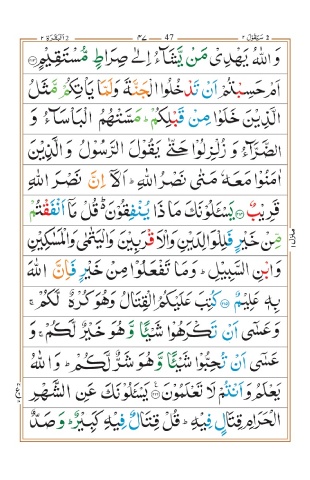 سیقول ٢ 47 ٣٧ البقرة ٢
وَ اللّٰهُ یَهْدِیْ مَنْ یَّشَآءُ اِلٰى صِرَاطٍ مُّسْتَقِیْمٍ ﴿۲۱۳﴾
اَمْ حَسِبْتُمْ اَنْ تَدْخُلُوا الْجَنَّةَ وَ لَمَّا یَاْتِكُمْ مَّثَلُ
الَّذِیْنَ خَلَوْا مِنْ قَبْلِكُمْ ؕ مَسَّتْهُمُ الْبَاْسَآءُ وَ
الضَّرَّآءُ وَ زُلْزِلُوْا حَتّٰى یَقُوْلَ الرَّسُوْلُ وَ الَّذِیْنَ
اٰمَنُوْا مَعَهٗ مَتٰى نَصْرُ اللّٰهِ ؕ اَلَاۤ اِنَّ نَصْرَ اللّٰهِ
قَرِیْبٌ ﴿۲۱۴﴾ یَسْـَٔلُوْنَكَ مَا ذَا یُنْفِقُوْنَ ؕ قُلْ مَاۤ اَنْفَقْتُمْ
مِّنْ خَیْرٍ فَلِلْوَالِدَیْنِ وَ الْاَقْرَبِیْنَ وَ الْیَتٰمٰى وَ الْمَسٰكِیْنِ
وَ ابْنِ السَّبِیْلِ ؕ وَ مَا تَفْعَلُوْا مِنْ خَیْرٍ فَاِنَّ اللّٰهَ
بِهٖ عَلِیْمٌ ﴿۲۱۵﴾ كُتِبَ عَلَیْكُمُ الْقِتَالُ وَ هُوَ كُرْهٌ لَّكُمْ ۚ
وَ عَسٰۤى اَنْ تَكْرَهُوْا شَیْـًٔا وَّ هُوَ خَیْرٌ لَّكُمْ ۚ وَ
عَسٰۤى اَنْ تُحِبُّوْا شَیْـًٔا وَّ هُوَ شَرٌّ لَّكُمْ ؕ وَ اللّٰهُ
یَعْلَمُ وَ اَنْتُمْ لَا تَعْلَمُوْنَ ﴿۲۱۶﴾ یَسْـَٔلُوْنَكَ عَنِ الشَّهْرِ
الْحَرَامِ قِتَالٍ فِیْهِ ؕ قُلْ قِتَالٌ فِیْهِ كَبِیْرٌ ؕ وَ صَدٌّ